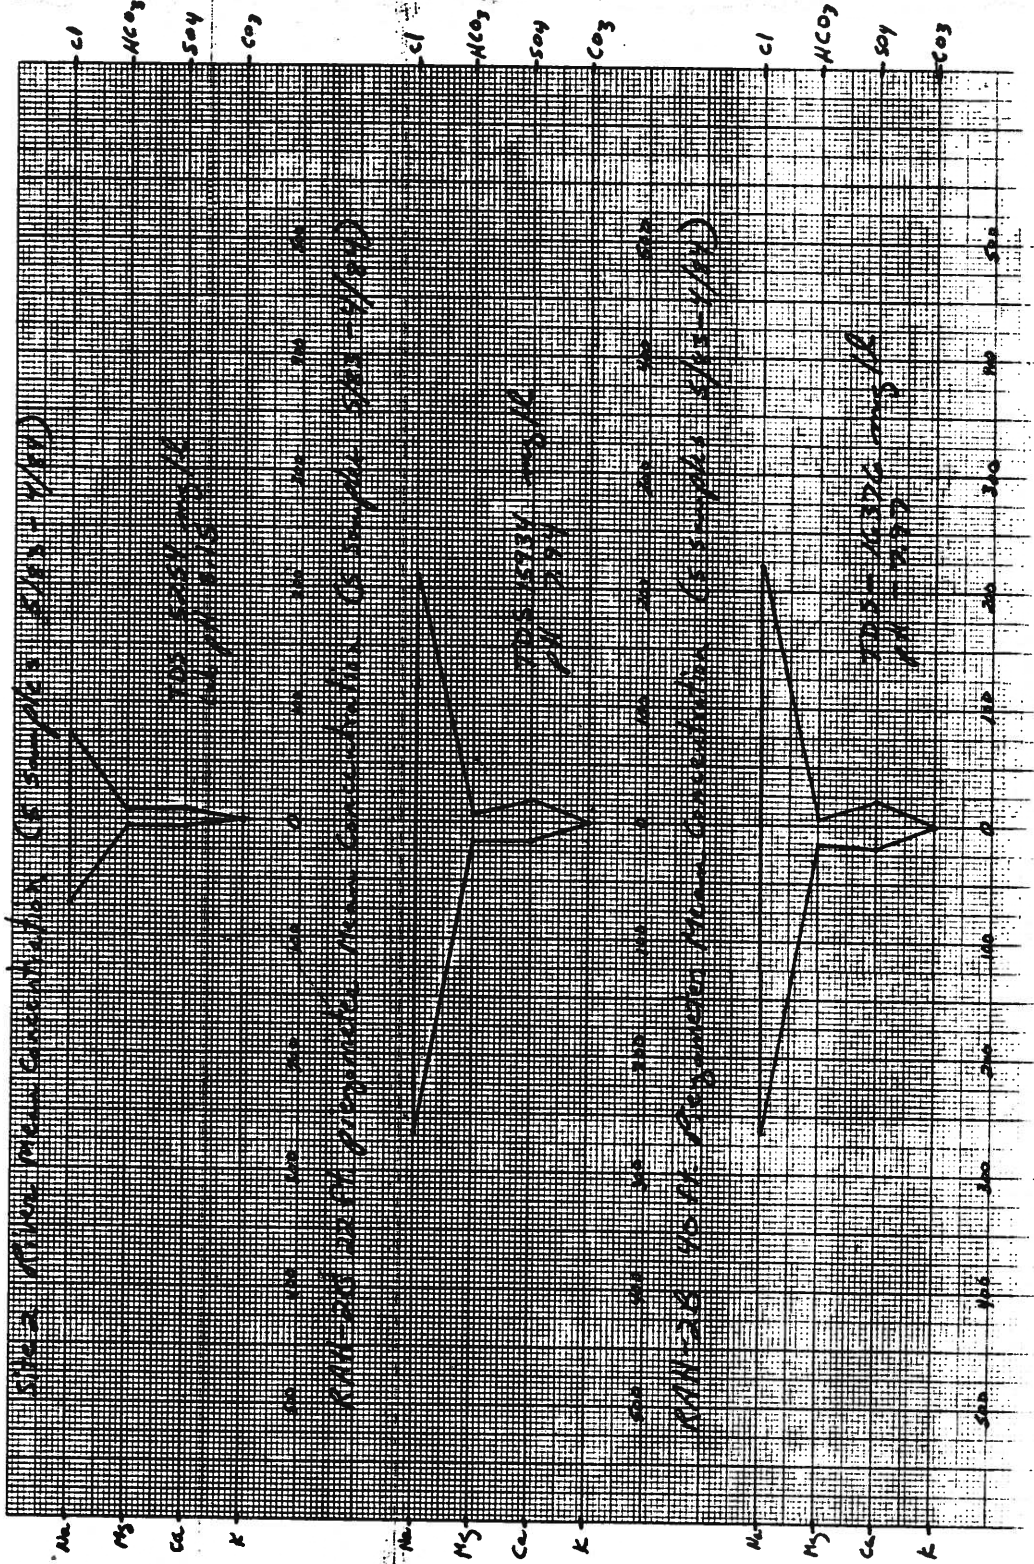 Site 2 River Mean Concentration (5 samples 5/83 - 4/84)
Na Cl
Mg HCO3
Ca SO4
K CO3
TDS 5254 mg/l
pH 8.15
500 400 300 200 100 0 100 200 300 400 500
RAH-2B 22 ft. piezometer Mean Concentration (5 samples 5/83-4/84)
Na Cl
Mg HCO3
Ca SO4
K CO3
TDS 15934 mg/l
pH 7.94
500 400 300 200 100 0 100 200 300 400 500
RAH-2B 40 ft. Piezometer Mean Concentration (5 samples 5/83-4/84)
Na Cl
Mg HCO3
Ca SO4
K CO3
TDS - 16376 mg/l
pH - 7.97
500 400 300 200 100 0 100 200 300 400 500